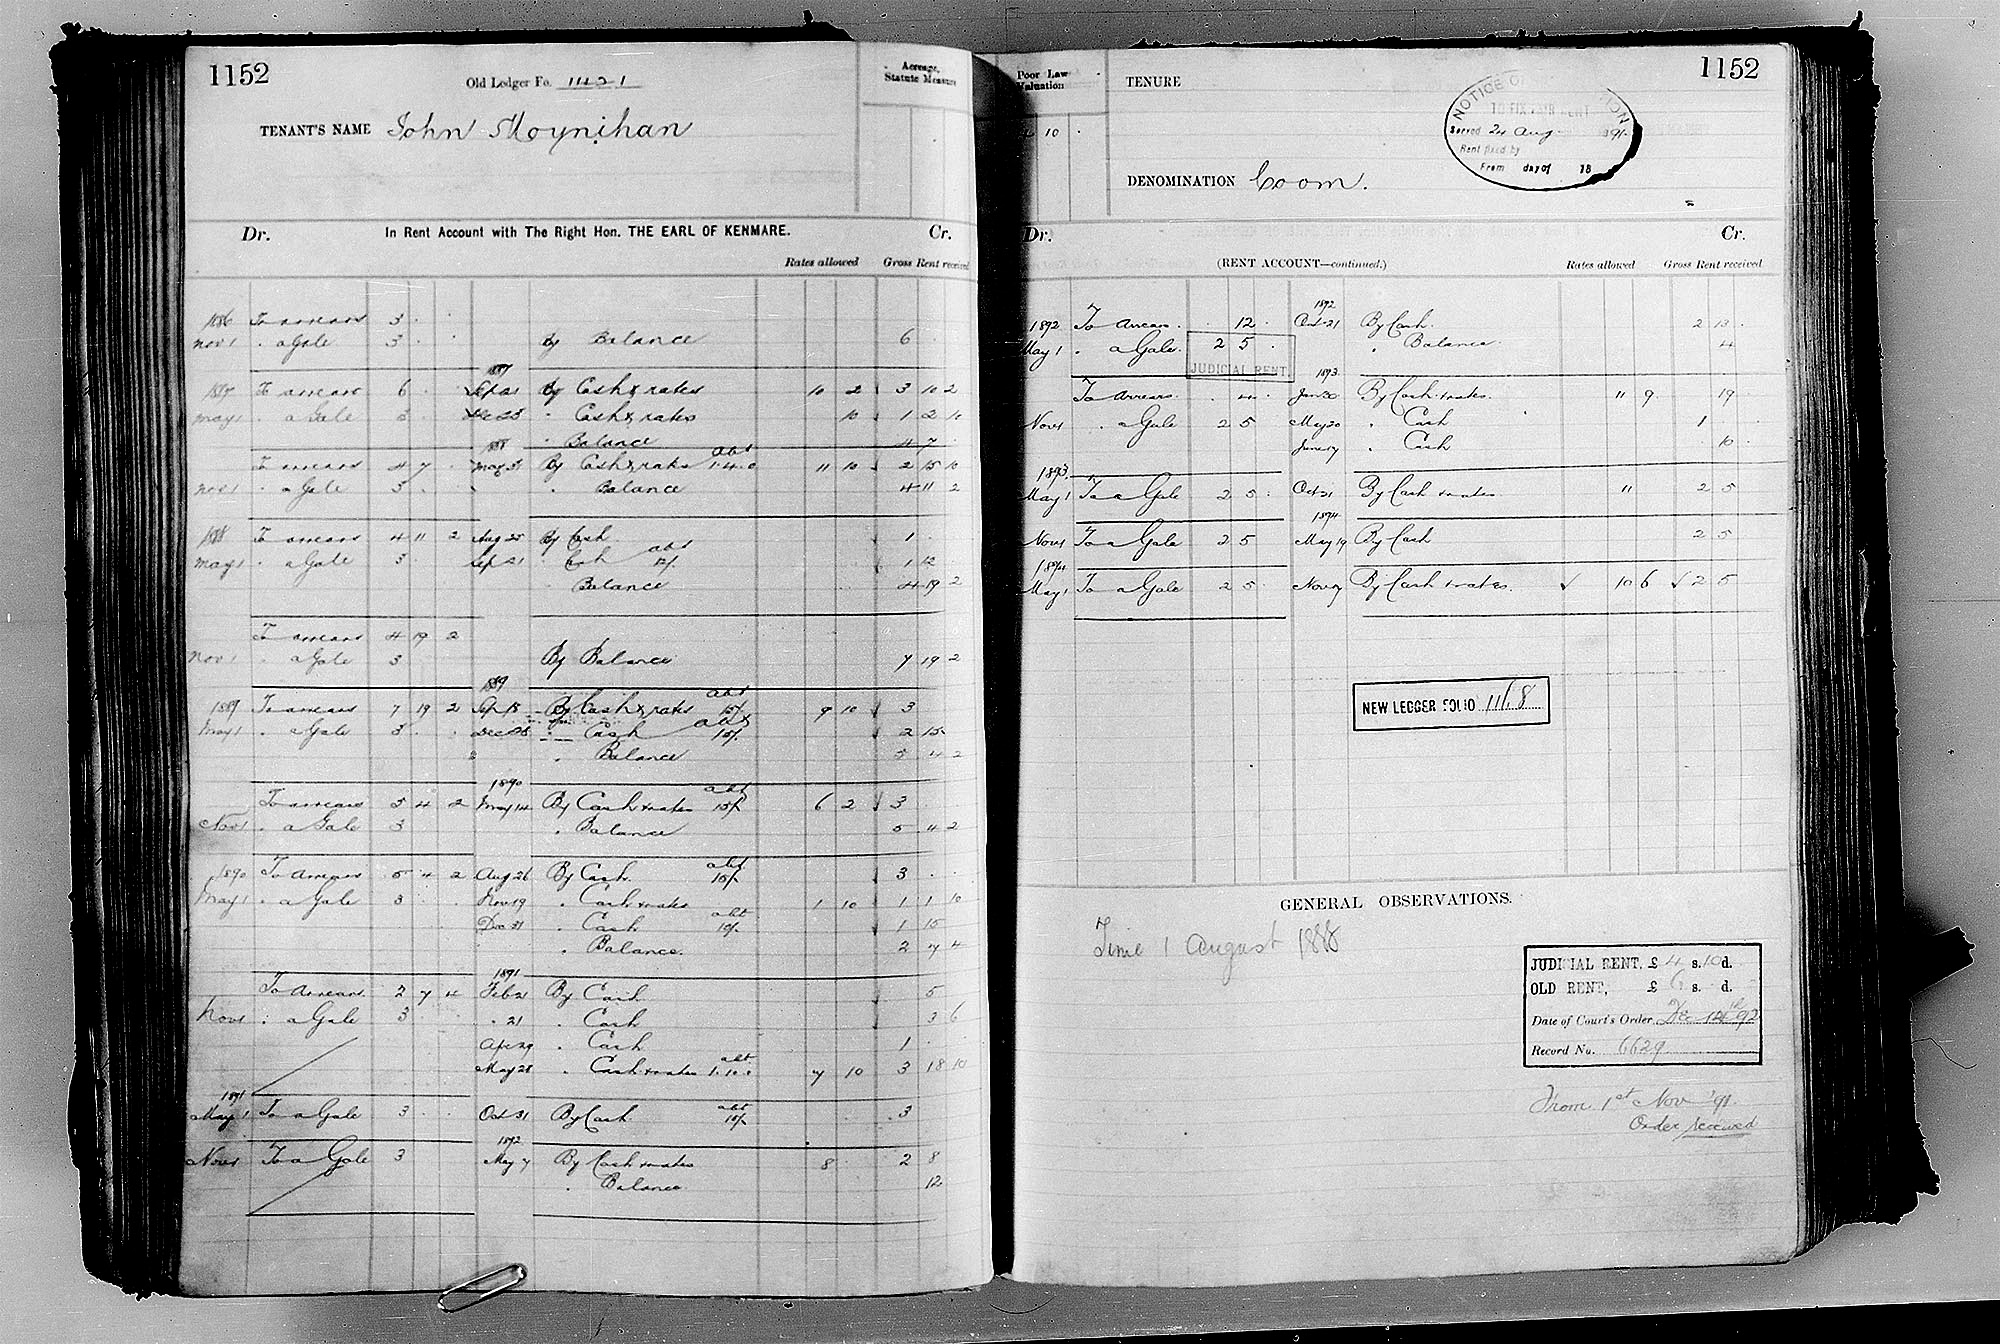 1152
Old Ledger Fo. 1421
Acreage, Statute Measure
TENANT'S NAME John Moynihan
Dr. In Rent Account with The Right Hon. THE EARL OF KENMARE. Cr.
Rates allowed Gross Rent received
1886 To arrears 3 . .
Nov 1 . a Gale 3 . . By Balance 6 .
1887
1887 To arrears 6 . . Sep 21 By Cash & rates 10 2 3 10 2
May 1 . a Gale 3 . . Dec 23 . Cash & rates 10 1 2 10
. Balance 4 7 .
1888 abt
To arrears 4 7 . May 31 By Cash & rates 1.4.0 11 10 2 15 10
Nov 1 . a Gale 3 . . Balance 4 11 2
1888 To arrears 4 11 2 Aug 25 By Cash 1 .
May 1 . a Gale 3 . Sep 21 . Cash abt 12/. 1 12 .
Balance 4 19 2
To arrears 4 19 2
Nov 1 . a Gale 3 By Balance 7 19 2
1889 abt
1889 To arrears 7 19 2 Sep 18 By Cash & rates 15/. 9 10 3
May 1 . a Gale 3 . . Dec 28 . Cash abt 15/. 2 15 .
. Balance 5 4 2
1890 abt
To arrears 5 4 2 May 14 By Cash & rates 15/. 6 2 3 .
Nov 1 . a Gale 3 . Balance 5 4 2
1890 To Arrears 5 4 2 Aug 26 By Cash abt 15/. 3 . .
May 1 . a Gale 3 . Nov 19 . Cash & rates 1 10 1 1 10
Dec 31 . Cash abt 10/. 1 15
. Balance. 2 7 4
1891
To Arrears. 2 7 4 Feb 21 By Cash 5
Nov 1 . a Gale 3 . 21 . Cash 3 6
Apr 29 . Cash 1 .
May 28 . Cash & rates abt 1.10.0 7 10 3 18 10
1891
May 1 To a Gale 3 . . Oct 31 By Cash abt 15/. 3
1892
Nov 1 To a Gale 3 May 7 By Cash & rates 8 . 2 8
. Balance 12
1152
Poor Law Valuation
4 10 .
TENURE
NOTICE OF
TO FIX FAIR RENT
Served 24 Aug 1891.
Rent fixed by
From day of 18
DENOMINATION Coom.
Dr. Cr.
(RENT ACCOUNT—continued.) Rates allowed Gross Rent received
1892
1892 To Arrears . 12 . Oct 21 By Cash. 2 13 .
May 1 . a Gale. 2 5 . . Balance. 4
JUDICIAL RENT.
1893
To Arrears . 4 . Jan 20 By Cash & rates. 11 9 19
Nov 1 . a Gale 2 5 May 20 . Cash 1 .
June 17 . Cash . 10 .
1893.
May 1 To a Gale 2 5 . Oct 21 By Cash & rates 11 2 5
1894
Nov 1 To a Gale 2 5 May 19 By Cash 2 5
1894
May 1 To a Gale 2 5 . Nov 7 By Cash & rates. √ 10 6 √ 2 5
NEW LEDGER FOLIO 1168
GENERAL OBSERVATIONS.
Time 1 August 1888
JUDICIAL RENT, £ 4 s. 10 d.
OLD RENT, £ 6 s. d.
Date of Court's Order Dec 14th 92
Record No. 6629
From 1st Nov '91.
Order received